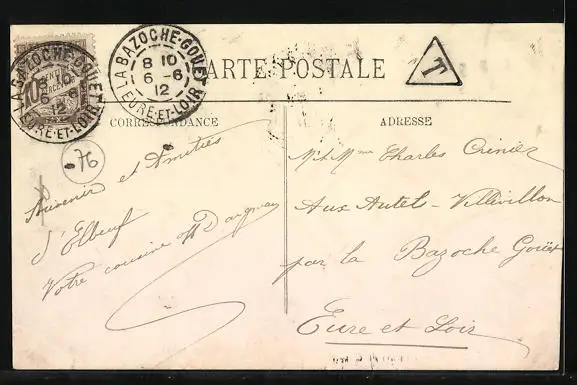 LA BAZOCHE-GOUET
8 10
6 -6
12
EURE-ET-LOIR
10
CENTIMES
À PERCEVOIR
LA BAZOCHE-GOUET
8 10
6 -6
12
EURE-ET-LOIR
CARTE POSTALE
T
CORRESPONDANCE
ADRESSE
76
Souvenir et Amitiés
d'Elbeuf
Votre cousine
Mr et Mme Charles
Aux Autels-Villévillon
par la Bazoche Gouët
Eure et Loir